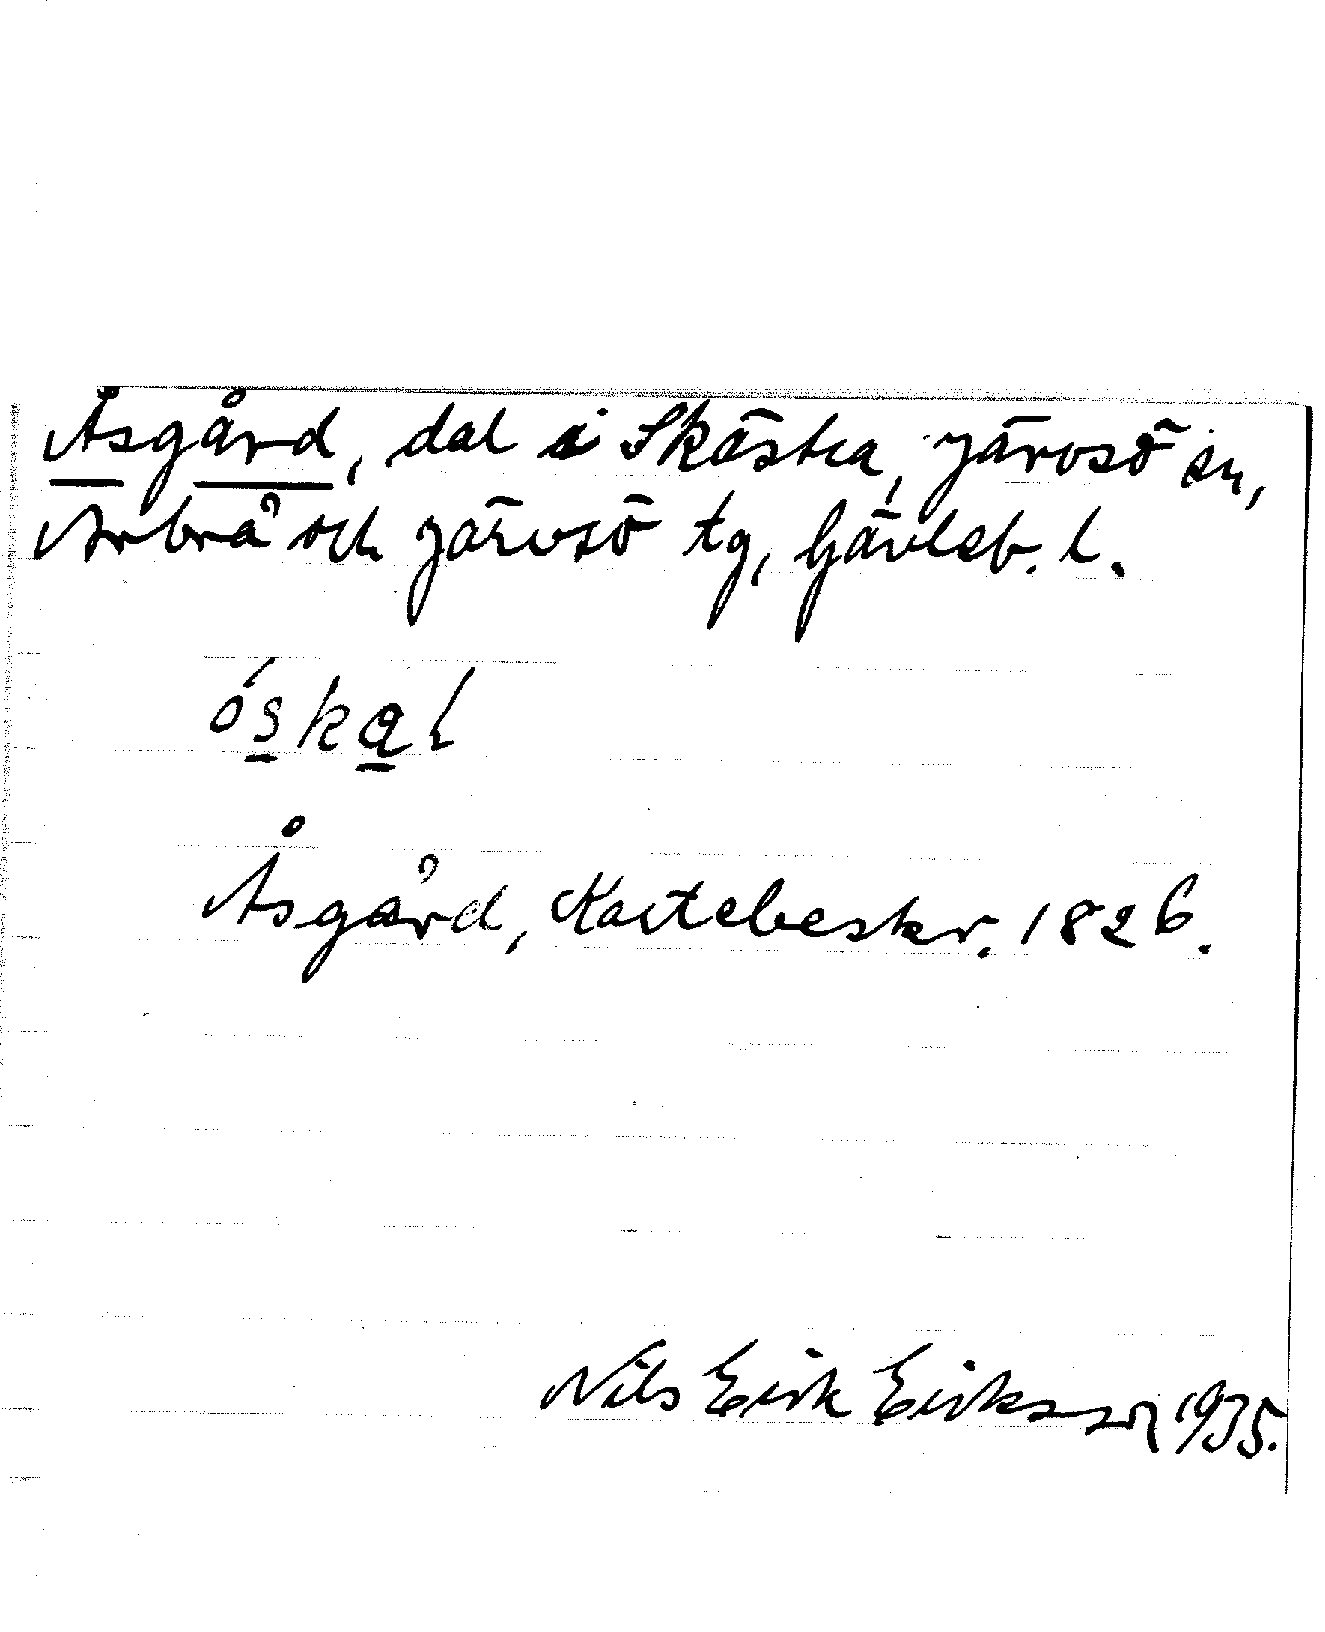 Åsgård, dal i Skästra, Järvsö sn,
Arbrå och Järvsö tg, Gävleb. l.
óskal
Åsgård, Kartebeskr. 1826.
Nils Erik Eriksson 1935.